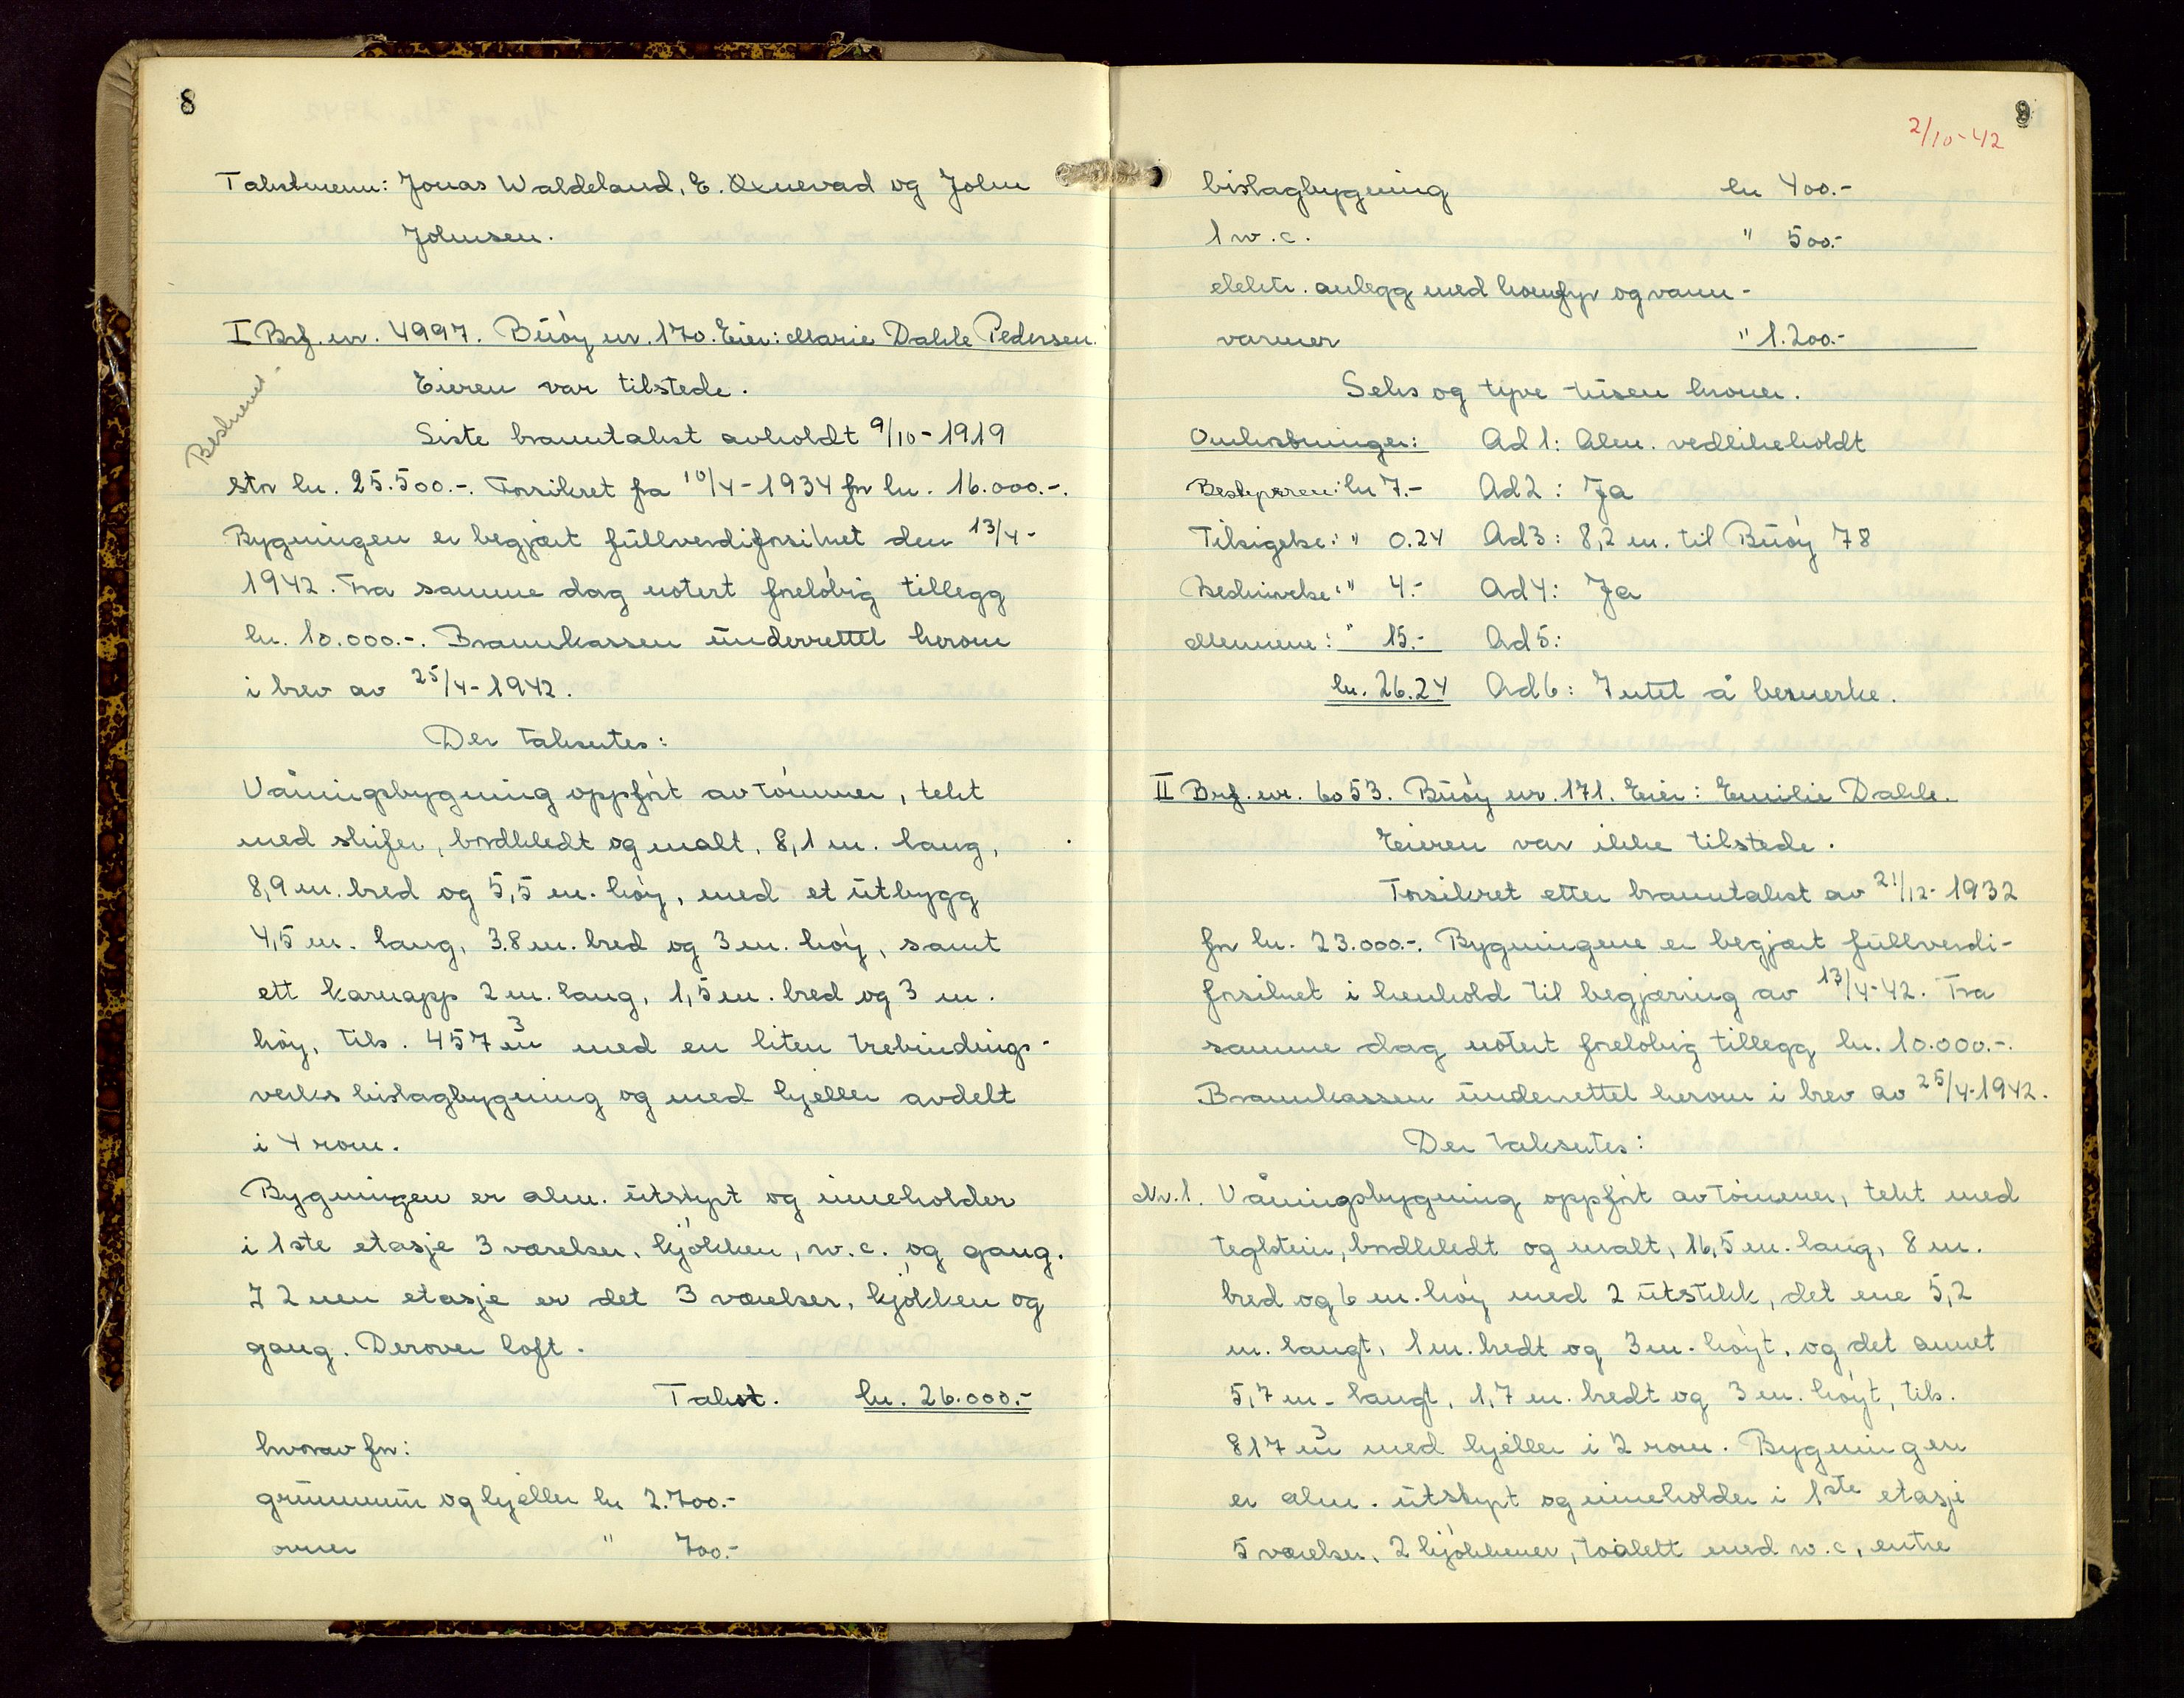 8
Takstmenn: Jonas Waldeland, E. Oxnevad og John
Johnsen.
I Brf. nr. 4997. Buøy nr. 170. Eier: Marie Dahle Pedersen.
Beskrevet.
Eieren var tilstede.
Siste branntakst avholdt 9/10-1919
stor kr. 25.500.-. Forsikret fra 10/4-1934 for kr. 16.000.-.
Bygningen er begjært fullverdiforsikret den 13/4-
1942. Fra samme dag notert foreløbig tillegg
kr. 10.000.-. Brannkassen underrettet herom
i brev av 25/4-1942.
Der taksertes:
Våningsbygning oppført av tømmer, tekt
med skifer, bordkledt og malt, 8,1 m. lang,
8,9 m. bred og 5,5 m. høy, med et utbygg
4,5 m. lang, 3.8 m. bred og 3 m. høy, samt
ett karnapp 2 m. lang, 1,5 m. bred og 3 m.
høy, tils. 457 m³ med en liten trebindings-
verks bislagbygning og med kjeller avdelt
i 4 rom.
Bygningen er alm. utstyrt og inneholder
i 1ste etasje 3 værelser, kjøkken, w.c. og gang.
I 2nen etasje er det 3 værelser, kjøkken og
gang. Derover loft.
Takst. kr. 26.000.-
hvorav for:
grunnmur og kjeller kr 2.700.-
ovner " 700.-
9
2/10-42
bislagbygning kr 400.-
1 w.c. " 500.-
elektr. anlegg med komfyr og vann-
varmer " 1.200.-
Seks og tyve tusen kroner.
Omkostninger: Ad 1: Alm. vedlikeholdt
Bestyreren: kr 7.- Ad 2: Ja
Tilsigelse: " 0.24 Ad 3: 8,2 m. til Buøy 78
Beskrivelse: " 4.- Ad 4: Ja
Mennene: " 15.- Ad 5:
kr. 26.24 Ad 6: Intet å bemerke.
II Brf. nr. 6053. Buøy nr. 171. Eier: Emilie Dahle.
Eieren var ikke tilstede.
Forsikret etter branntakst av 21/12-1932
for kr. 23.000.-. Bygningene er begjært fullverdi-
forsikret i henhold til begjæring av 13/4-42. Fra
samme dag notert foreløbig tillegg kr. 10.000.-.
Brannkassen underrettet herom i brev av 25/4-1942.
Der taksertes:
Nr. 1. Våningsbygning oppført av tømmer, tekt med
teglstein, bordkledt og malt, 16,5 m. lang, 8 m.
bred og 6 m. høy med 2 utstikk, det ene 5,2
m. langt, 1 m. bredt og 3 m. høyt, og det annet
5,7 m. langt, 1,7 m. bredt og 3 m. høyt, tils.
817 m³ med kjeller i 2 rom. Bygningen
er alm. utstyrt og inneholder i 1ste etasje
5 værelser, 2 kjøkkener, toalett med w.c, entre